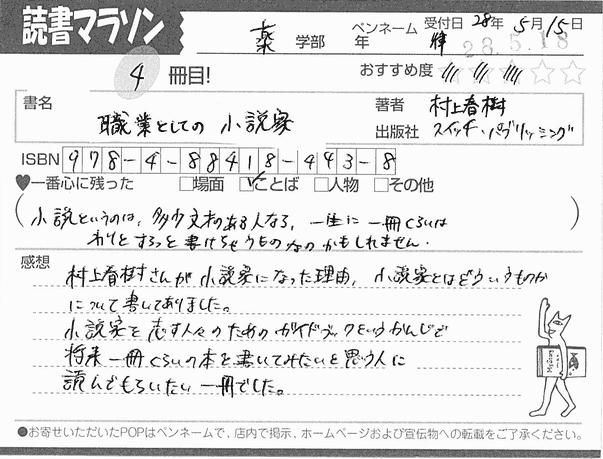 読書マラソン
薬 学部 年 ペンネーム 輝 受付日 28年 5月 15日
28.5.18
4 冊目! おすすめ度 ☆☆☆☆☆
書名 職業としての 小説家
著者 村上春樹
出版社 スイッチ・パブリッシング
ISBN 978-4-88418-443-8
♥一番心に残った □場面 ☑ことば □人物 □その他
(小説というのは、多少文才のある人なら、一生に一冊くらいは
わりとするっと書けちゃうものなのかもしれません.)
感想
村上春樹さんが小説家になった理由, 小説家とはどういうものか
について書いてありました。
小説家を志す人々のためのガイドブックというかんじで
将来一冊くらいの本を書いてみたいと思う人に
読んでもらいたい一冊でした。
●お寄せいただいたPOPはペンネームで、店内で掲示、ホームページおよび宣伝物への転載をご了承ください。